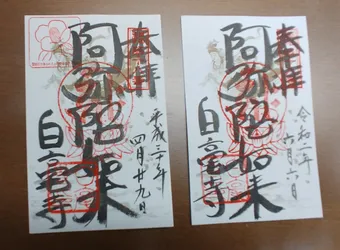 奉拝
阿弥陀如来
白毫寺
平成三十年
四月廿九日
奉拝
阿弥陀如来
白毫寺
令和二年
六月六日